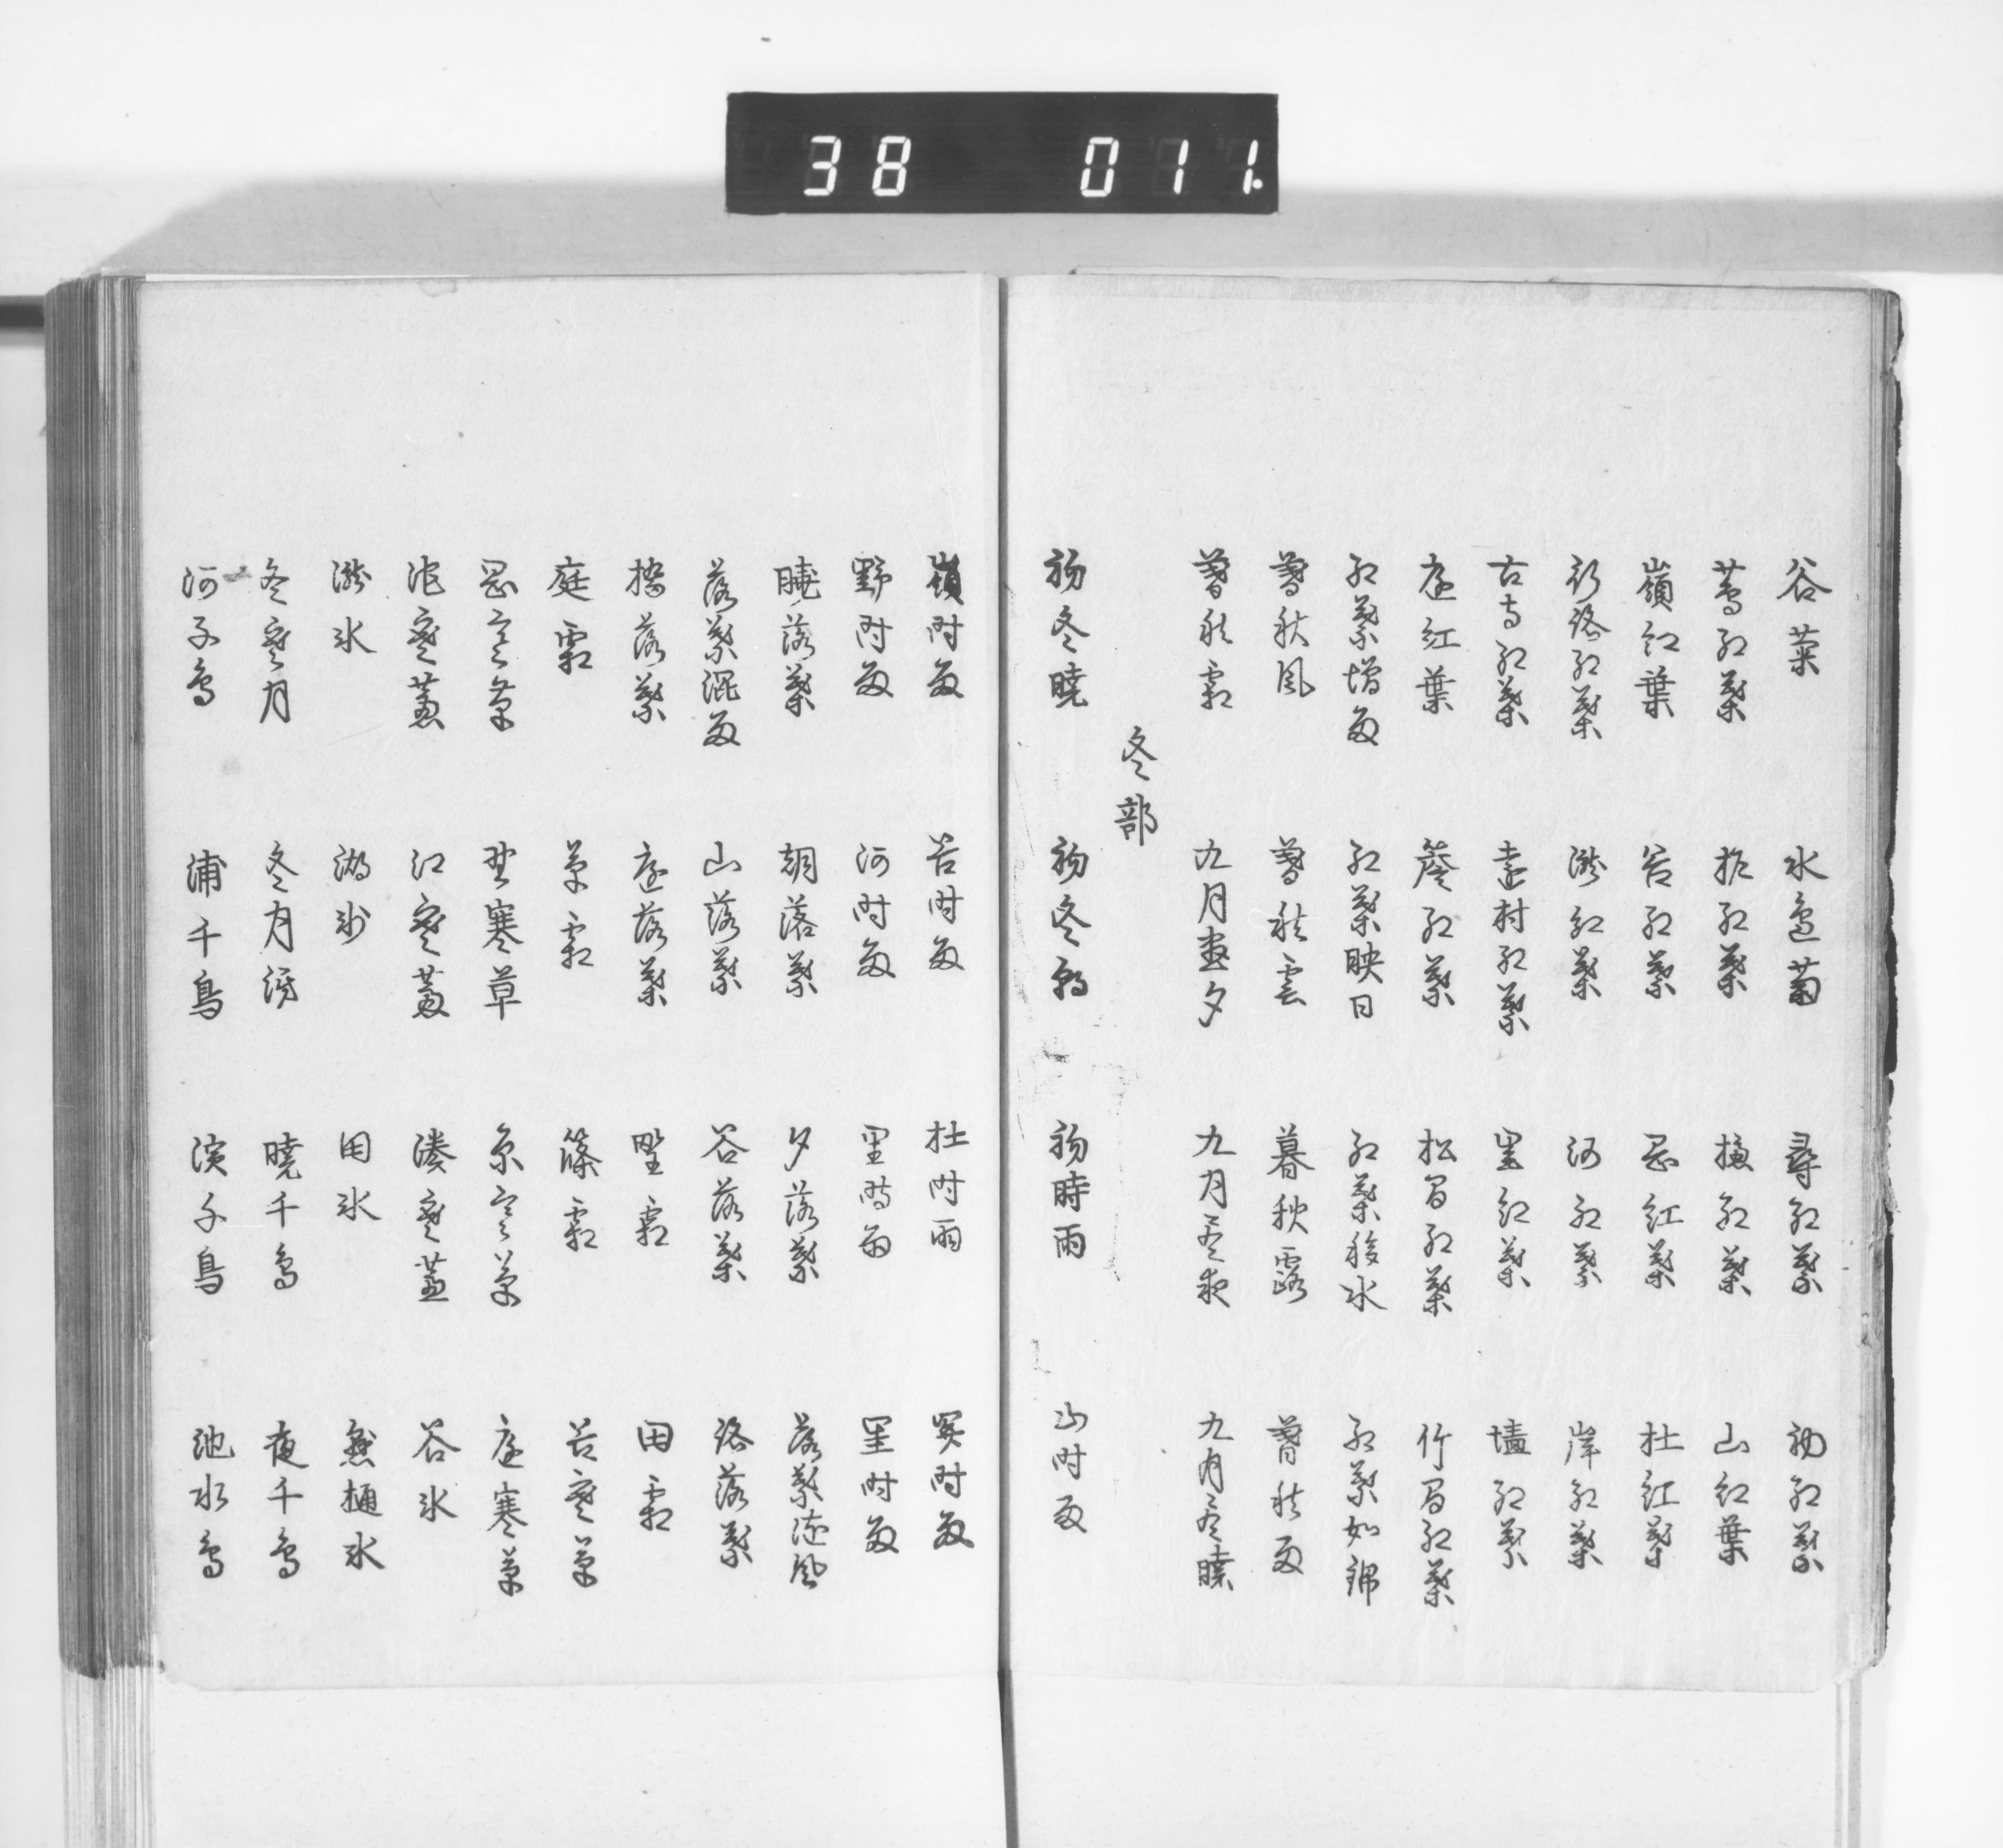 38 011.
谷菊 水邊菊 尋紅葉 初紅葉
蔦紅葉 柞紅葉 櫨紅葉 山紅葉
嶺紅葉 谷紅葉 岡紅葉 杜紅葉
行路紅葉 瀧紅葉 河紅葉 岸紅葉
古寺紅葉 遠村紅葉 里紅葉 墻紅葉
庭紅葉 簷紅葉 松間紅葉 竹間紅葉
紅葉増雨 紅葉映日 紅葉移水 紅葉如錦
暮秋風 暮秋雲 暮秋露 暮秋雨
暮秋霜 九月盡夕 九月尽夜 九月尽暁
冬部
初冬暁 初冬朝 初時雨 山時雨
嶺時雨 谷時雨 杜時雨 関時雨
野時雨 河時雨 里時雨 時雨
暁落葉 朝落葉 夕落葉 落葉随風
落葉混雨 山落葉 谷落葉 路落葉
橋落葉 庭落葉 野霜 田霜
庭霜 草霜 篠霜 谷寒草
岡寒草 野寒草 原寒草 庭寒草
寒蘆 江寒蘆 湊寒蘆 谷氷
瀧氷 湖氷 田氷 懸樋氷
冬寒月 冬月 暁千鳥 夜千鳥
河千鳥 浦千鳥 濱千鳥 池水鳥